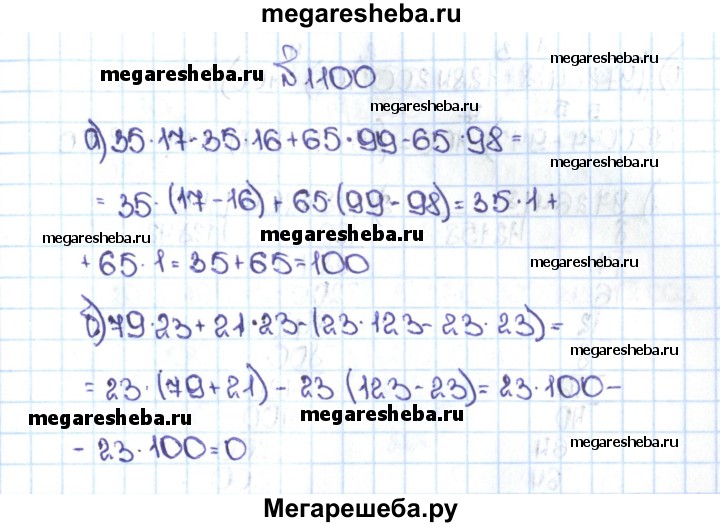 megaresheba.ru
megaresheba.ru
megaresheba.ru № 1100
megaresheba.ru
а) 35·17-35·16+65·99-65·98=
megaresheba.ru
= 35·(17-16)+65·(99-98)=35·1+
megaresheba.ru megaresheba.ru
+65·1=35+65=100
megaresheba.ru
б) 79·23+21·23-(23·123-23·23)=
megaresheba.ru
= 23·(79+21)-23(123-23)=23·100-
megaresheba.ru megaresheba.ru
-23·100=0
megaresheba.ru
Мегарешеба.ру